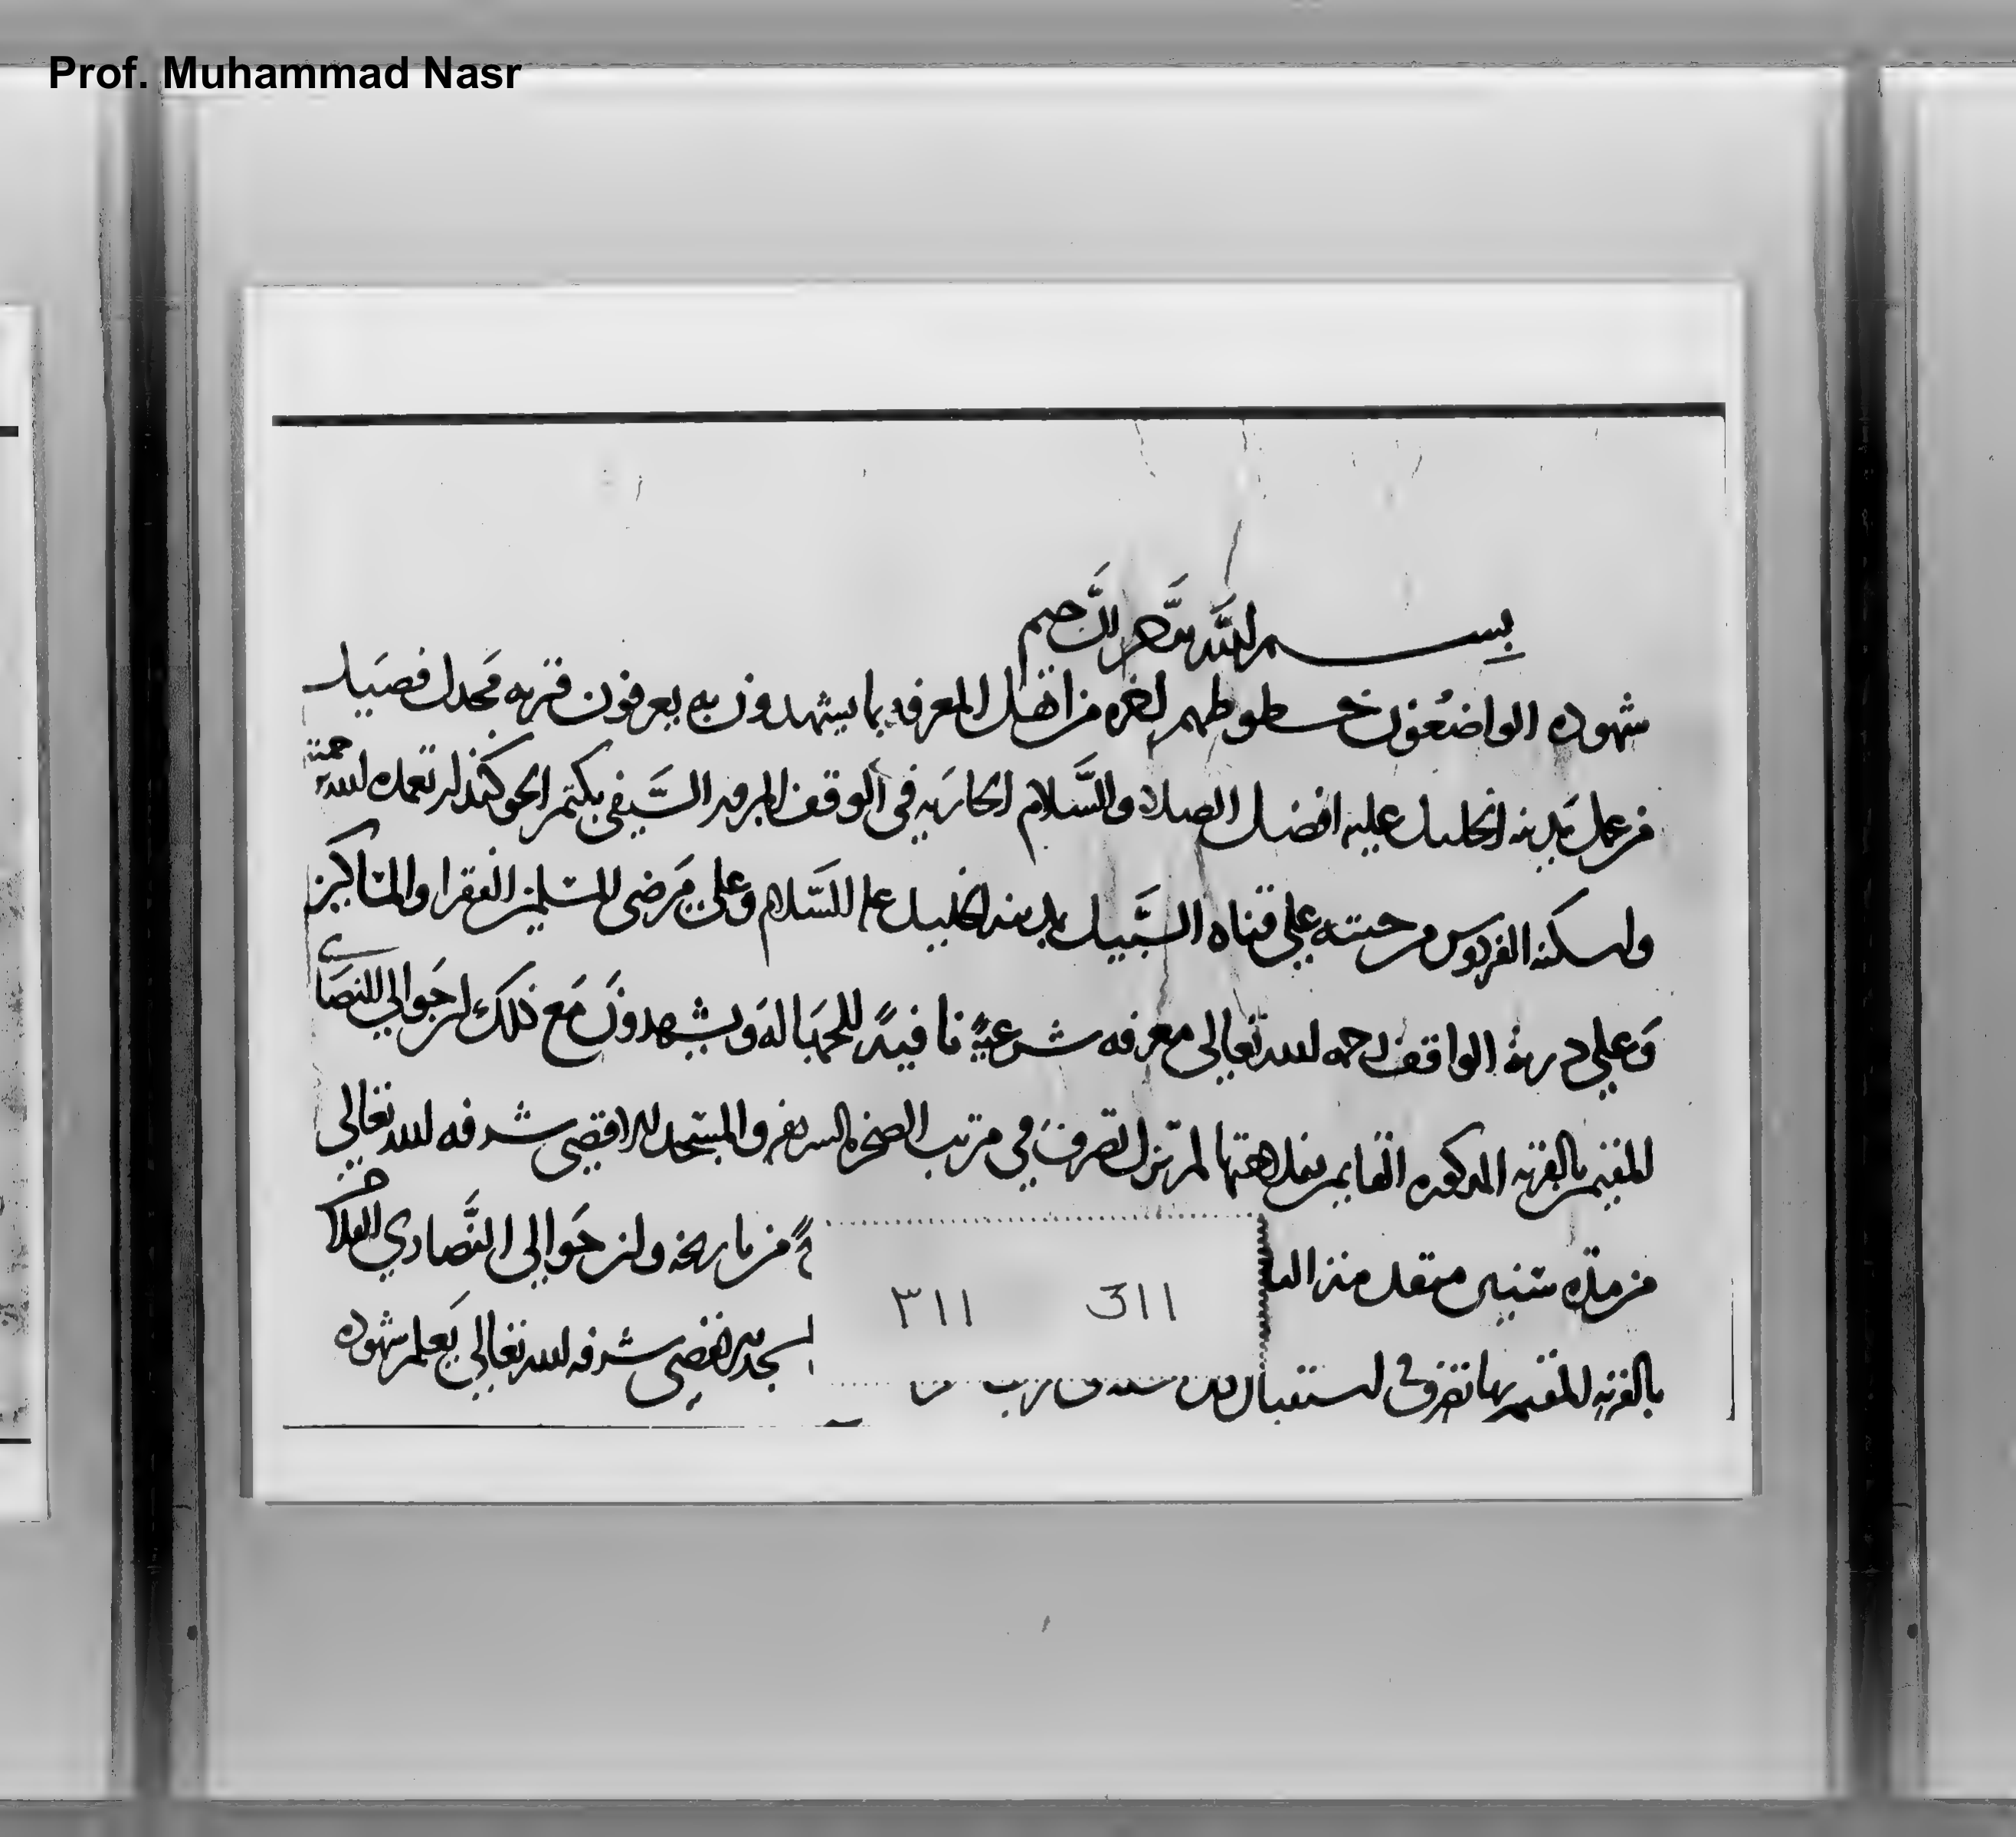 Prof. Muhammad Nasr
بسم الله الرحمن الرحيم
شهوده الواضعون خطوطهم اخره من اهل المعرفه بما يشهدون به يعرفون قريه مجدل فضيل
من عمل مدينه الخليل عليه افضل الصلاه والسلام الجاريه في الوقف المبرور السيفي بكتمر الجوكندار تغمده الله برحمته
واسكنه الفردوس من جنته علي قناه السبيل بمدينه الخليل عليه السلام وعلي مرضي المسلمين الفقرا والمساكين
وعلي ذرية الواقف رحمه الله تعالي معرفه شرعيةً نافيةً للجهاله ويشهدون مع ذلك ان جوالي النصاري
المقيمين بالقريه المذكوره القايمين بفلاحتها لم تزل تصرف في مرتب الصخره الشريفه والمسجد الاقصي شرفه الله تعالي
من مدة سنين متقدمه من تاريخه وان جوالي النصاري الفلاحين
بالقريه المقيمين بها تصرف في استقبال المسجد الاقصي شرفه الله تعالي يعلم شهوده
٣١١ 311